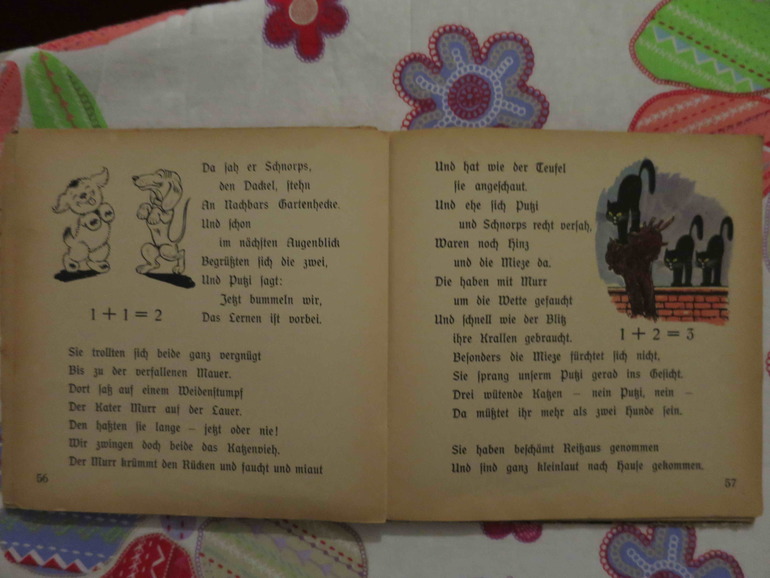 Da sah er Schnorps,
den Dackel, stehn
An Nachbars Gartenhecke.
Und schon
im nächsten Augenblick
Begrüßten sich die zwei,
Und Putzi sagt:
Jetzt bummeln wir,
Das Lernen ist vorbei.
1 + 1 = 2
Sie trollten sich beide ganz vergnügt
Bis zu der verfallenen Mauer.
Dort saß auf einem Weidenstumpf
Der Kater Murr auf der Lauer.
Den haßten sie lange – jetzt oder nie!
Wir zwingen doch beide das Katzenvieh.
Der Murr krümmt den Rücken und faucht und miaut
56
Und hat wie der Teufel
sie angeschaut.
Und ehe sich Putzi
und Schnorps recht versah,
Waren noch Hinz
und die Mieze da.
Die haben mit Murr
um die Wette gefaucht
Und schnell wie der Blitz
ihre Krallen gebraucht.
1 + 2 = 3
Besonders die Mieze fürchtet sich nicht,
Sie sprang unserm Putzi gerad ins Gesicht.
Drei wütende Katzen – nein Putzi, nein –
Da müßtet ihr mehr als zwei Hunde sein.
Sie haben beschämt Reißaus genommen
Und sind ganz kleinlaut nach Hause gekommen.
57